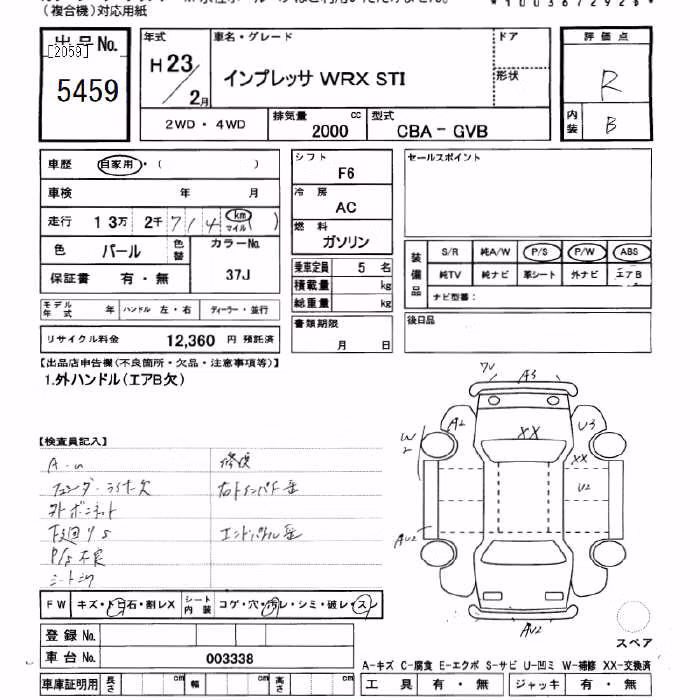 (複合機)対応用紙
出品No.
[2059]
5459
年式
H23/2月
車名・グレード
インプレッサ WRX STI
ドア
形状
評価点
R
内装
B
2WD・4WD
排気量 2000 cc
型式 CBA-GVB
車歴 自家用・( )
車検 年 月
走行 13万 2千 714 km マイル ( )
色 パール 色替
カラーNo. 37J
保証書 有・無
モデル年式 年 ハンドル 左・右 ディーラー・並行
リサイクル料金 12,360 円 預託済
シフト
F6
冷房
AC
燃料
ガソリン
乗車定員 5 名
積載量 kg
総重量 kg
書類期限
月 日
セールスポイント
装備品
S/R 純A/W P/S P/W ABS
純TV 純ナビ 革シート 外ナビ エアB
ナビ型番:
後日品
【出品店申告欄(不良箇所・欠品・注意事項等)】
1.外ハンドル(エアB欠)
【検査員記入】
修復
外ボンネット
P/S不良
7U A3
A2
U3
W2
XX
XX
U2
AU2
AU2
FW キズ・トビ石・割レX シート内装 コゲ・穴・汚レ・シミ・破レ・スレ
登録No.
車台No. 003338
車庫証明用 長さ cm 幅 cm 高さ cm
スペア
A-キズ C-腐食 E-エクボ S-サビ U-凹ミ W-補修 XX-交換済
工具 有・無 ジャッキ 有・無